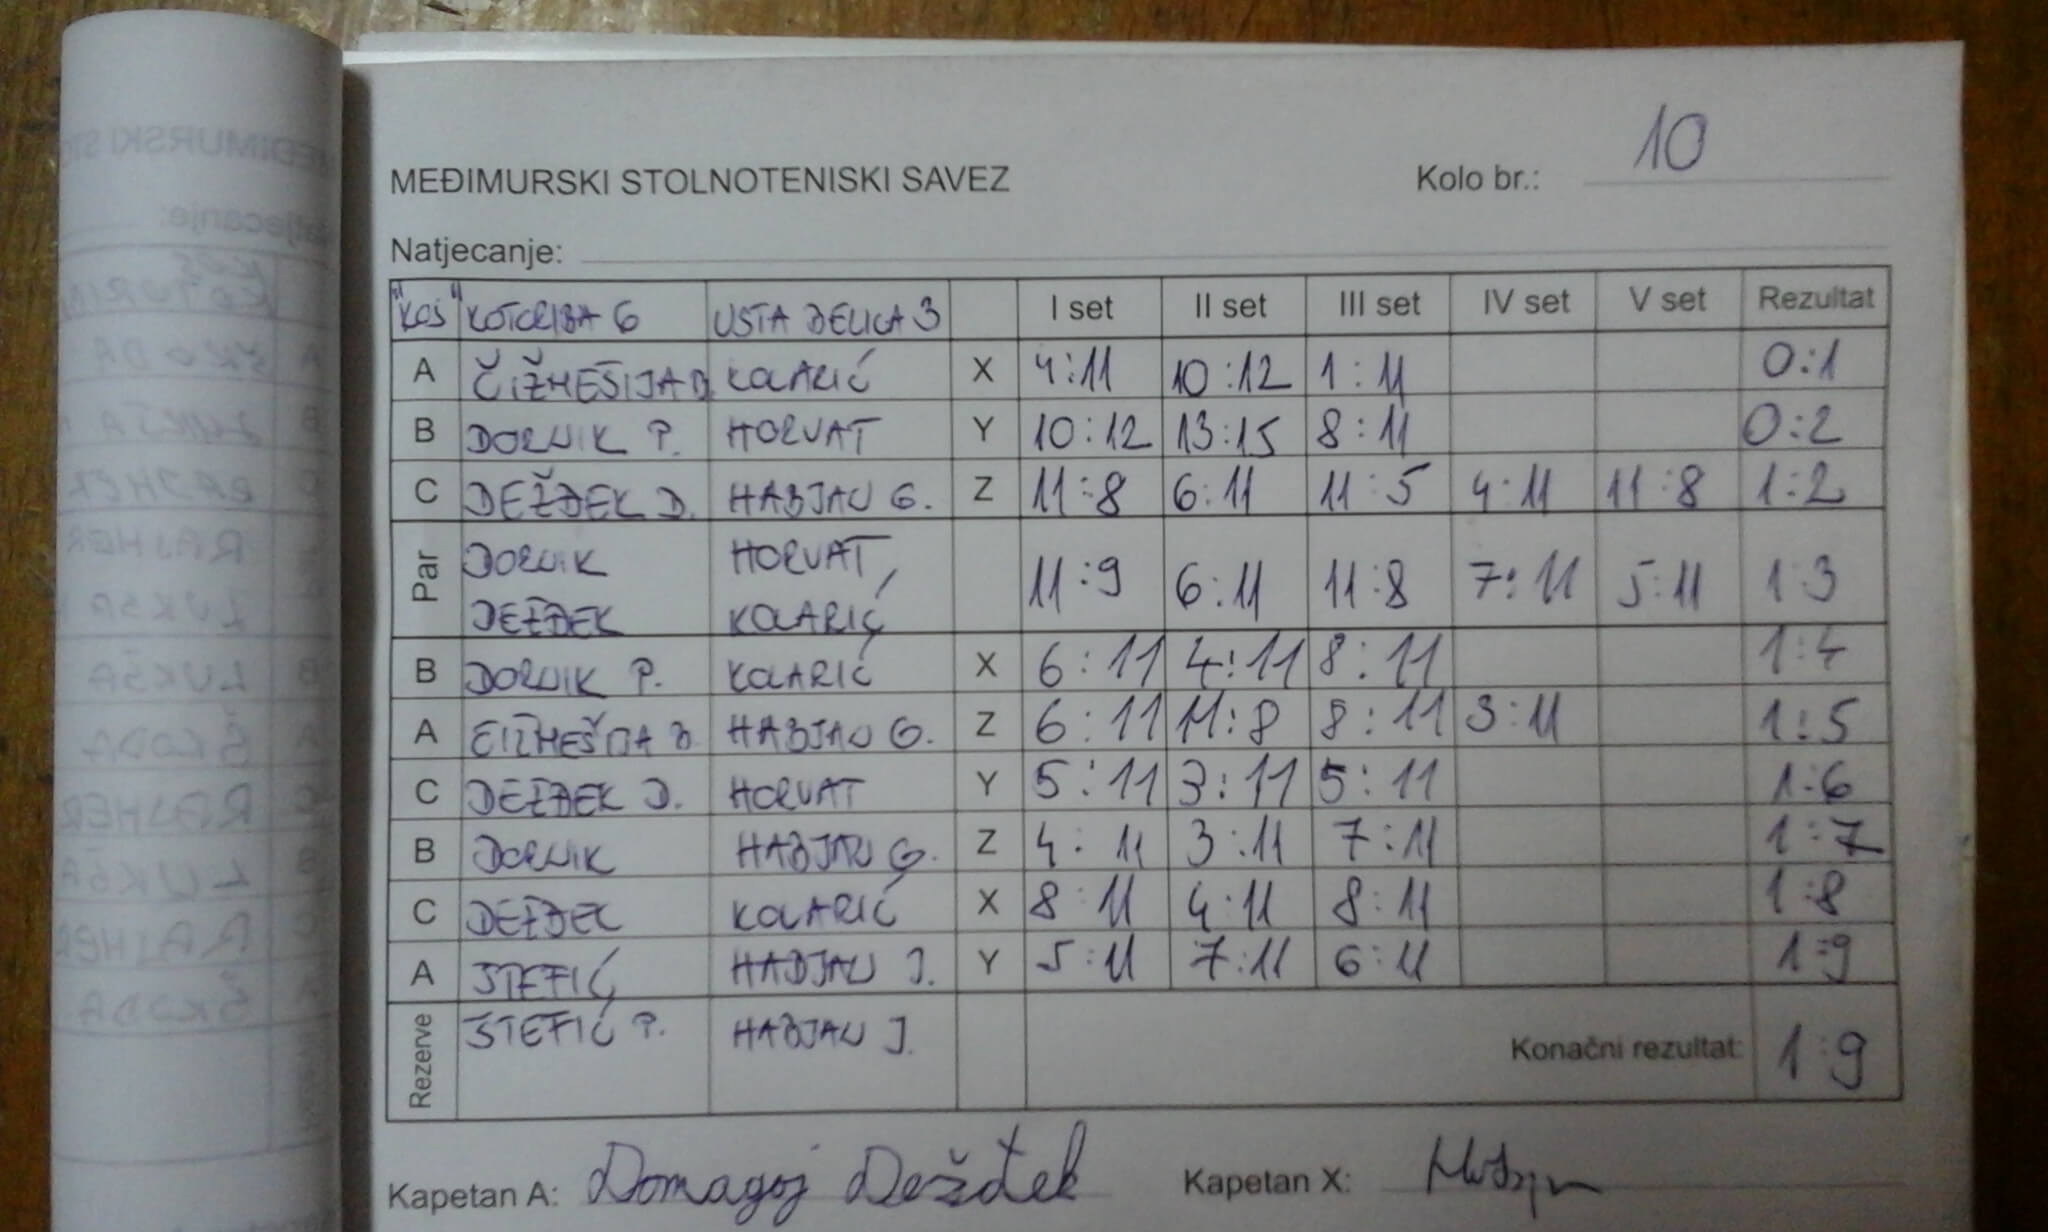 MEĐIMURSKI STOLNOTENISKI SAVEZ Kolo br.: 10
Natjecanje:
"KOŠ" KOTORIBA 6 USTA DELICA 3 I set II set III set IV set V set Rezultat
A ČIŽMEŠIJA D. KOLARIĆ X 4:11 10:12 1:11 0:1
B DORNIK P. HORVAT Y 10:12 13:15 8:11 0:2
C DEŽĐEK D. HABJAN G. Z 11:8 6:11 11:5 4:11 11:8 1:2
Par DORNIK HORVAT 11:9 6:11 11:8 7:11 5:11 1:3
DEŽĐEK KOLARIĆ
B DORNIK P. KOLARIĆ X 6:11 4:11 8:11 1:4
A ČIŽMEŠIJA D. HABJAN G. Z 6:11 11:8 8:11 3:11 1:5
C DEŽĐEK D. HORVAT Y 5:11 3:11 5:11 1:6
B DORNIK HABJAN G. Z 4:11 3:11 7:11 1:7
C DEŽĐEK KOLARIĆ X 8:11 4:11 8:11 1:8
A STEFIĆ HABJAN J. Y 5:11 7:11 6:11 1:9
Rezerve STEFIĆ P. HABJAN J. Konačni rezultat: 1:9
Kapetan A: Domagoj Dežđek Kapetan X: